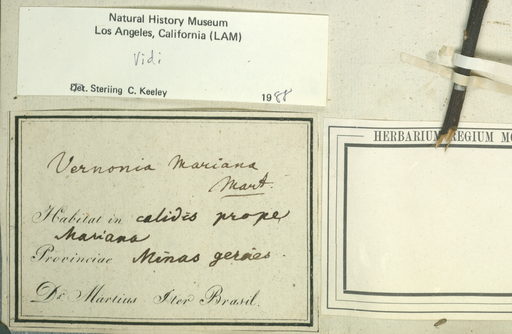 Natural History Museum
Los Angeles, California (LAM)
Vidi
Det. Sterling C. Keeley
1988
Vernonia Mariana
Mart.
Habitat in calidis prope
Mariana
Provinciae Minas geraes.
Dr. Martius Iter Brasil.
HERBARIUM REGIUM MO